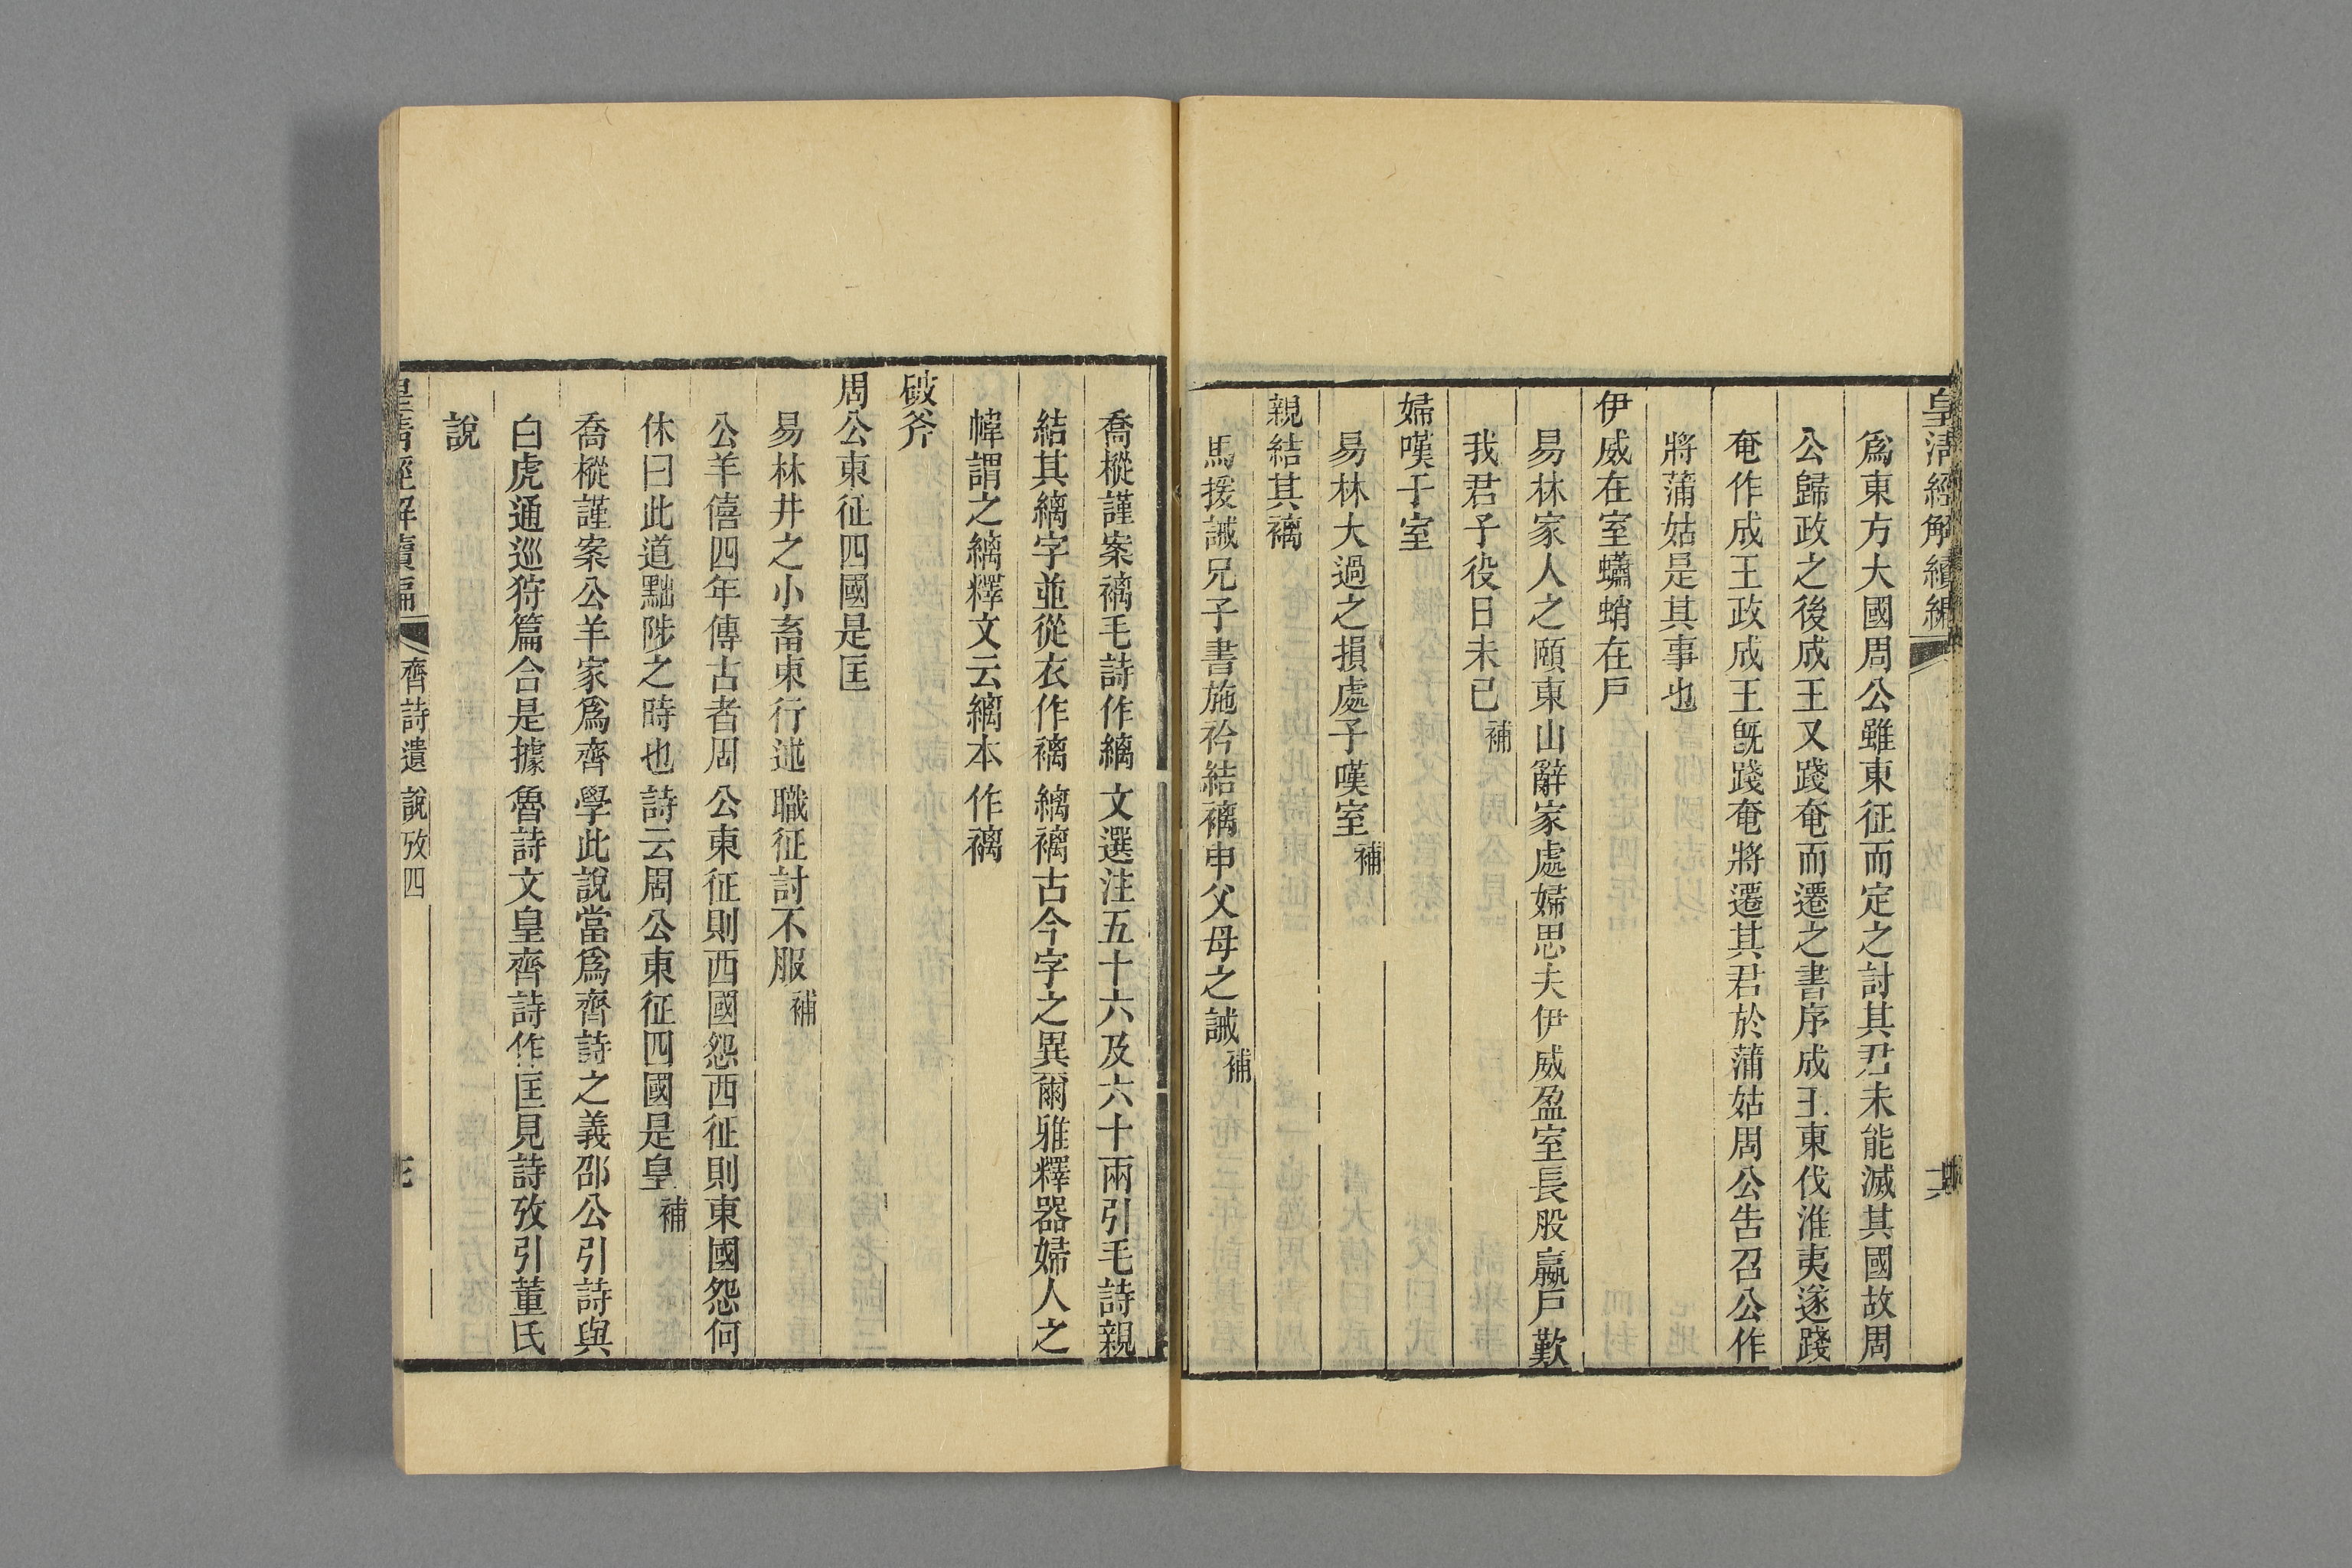 皇清經解續編
爲東方大國周公雖東征而定之討其君未能滅其國故周
公歸政之後成王又踐奄而遷之書序成王東伐淮夷遂踐
奄作成王政成王旣踐奄將遷其君於蒲姑周公告召公作
將蒲姑是其事也
伊威在室蠨蛸在戸
易林家人之頤東山辭家處婦思夫伊威盈室長股嬴戸歎
我君子役日未已補
婦嘆于室
易林大過之損處子嘆室補
親結其褵
馬援誡兄子書施衿結褵申父母之誡補
喬樅謹案褵毛詩作縭文選注五十六及六十兩引毛詩親
結其縭字並從衣作褵縭褵古今字之異爾雅釋器婦人之
幃謂之縭釋文云縭本作褵
破斧
周公東征四國是匡
易林井之小畜東行述職征討不服補
公羊僖四年傳古者周公東征則西國怨西征則東國怨何
休曰此道黜陟之時也詩云周公東征四國是皇補
喬樅謹案公羊家爲齊學此說當爲齊詩之義邵公引詩與
白虎通巡狩篇合是據魯詩文皇齊詩作匡見詩攷引董氏
說
皇清經解續編 齊詩遺說攷四